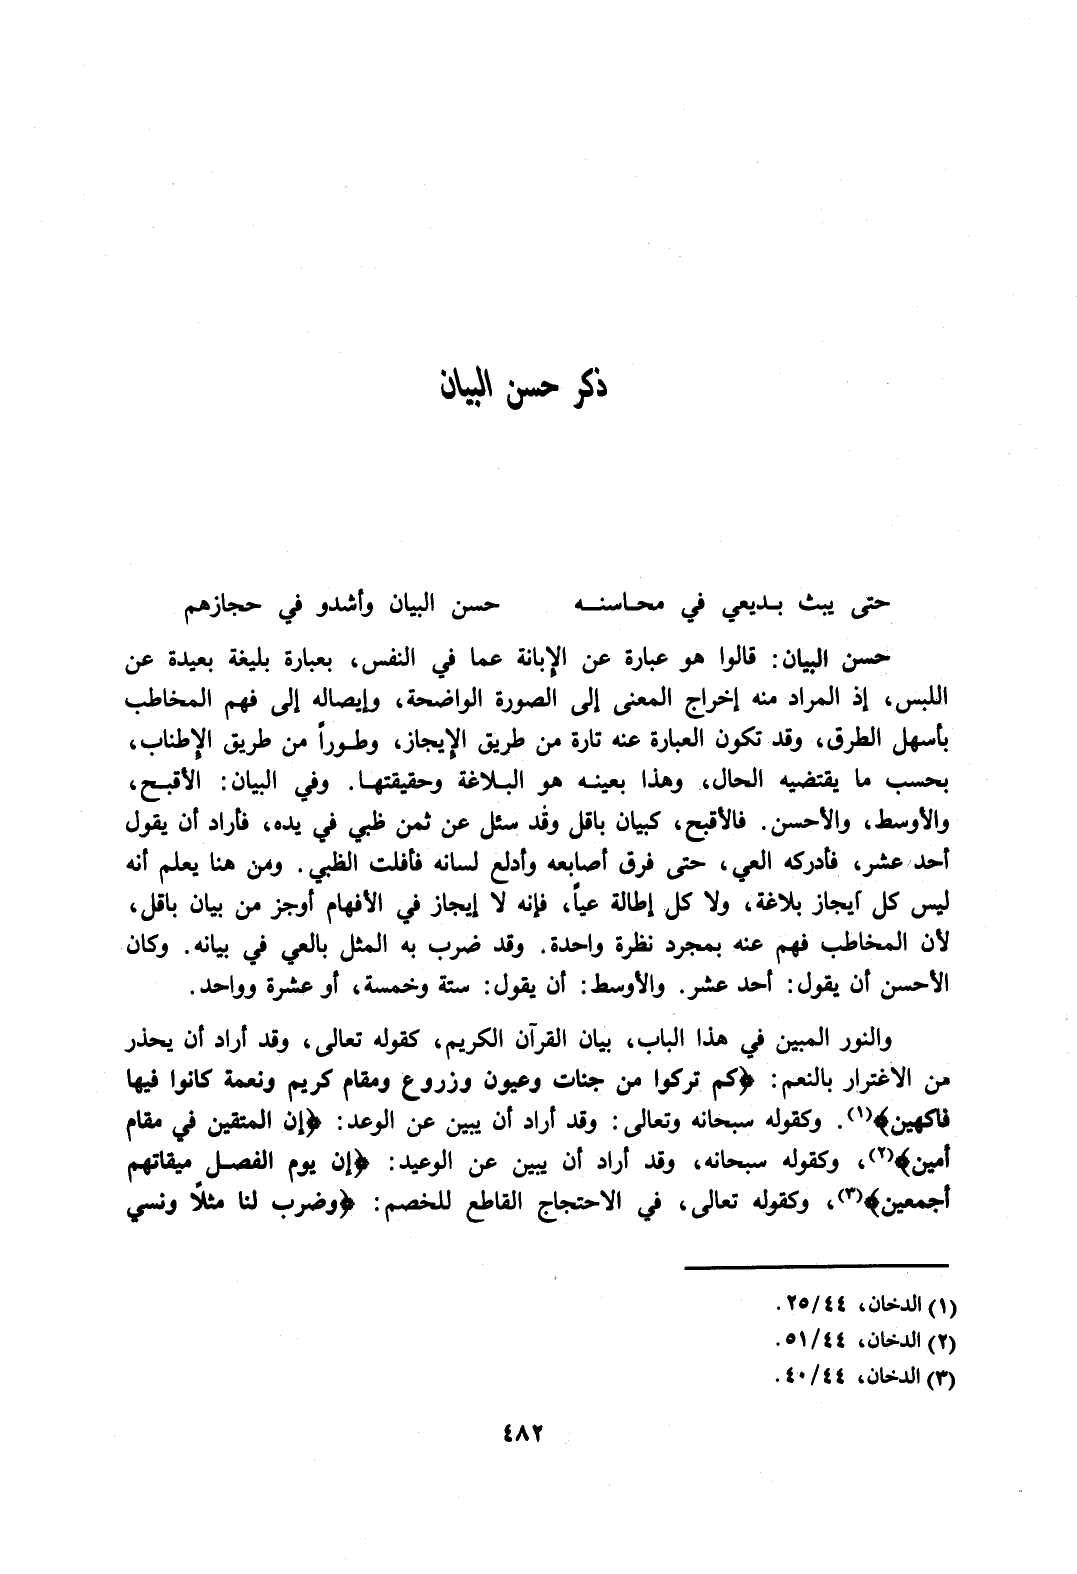 ذكر حسن البيان
حتى يبث بـديعي في محـاسنـه حسن البيان وأشدو في حجازهم
حسن البيان: قالوا هو عبارة عن الإبانة عما في النفس، بعبارة بليغة بعيدة عن
اللبس، إذ المراد منه إخراج المعنى إلى الصورة الواضحة، وإيصاله إلى فهم المخاطب
بأسهل الطرق، وقد تكون العبارة عنه تارة من طريق الإيجاز، وطـوراً من طريق الإطناب،
بحسب ما يقتضيه الحال، وهذا بعينـه هو البـلاغة وحقيقتهـا. وفي البيان: الأقبـح،
والأوسط، والأحسن. فالأقبح، كبيان باقل وقد سئل عن ثمن ظبي في يده، فأراد أن يقول
أحد عشر، فأدركه العي، حتى فرق أصابعه وأدلع لسانه فأفلت الظبي. ومن هنا يعلم أنه
ليس كل آيجاز بلاغة، ولا كل إطالة عياً، فإنه لا إيجاز في الأفهام أوجز من بيان باقل،
لأن المخاطب فهم عنه بمجرد نظرة واحدة. وقد ضرب به المثل بالعي في بيانه. وكان
الأحسن أن يقول: أحد عشر. والأوسط: أن يقول: ستة وخمسة، أو عشرة وواحد.
والنور المبين في هذا الباب، بيان القرآن الكريم، كقوله تعالى، وقد أراد أن يحذر
من الاغترار بالنعم: ﴿كم تركوا من جنات وعيون وزروع ومقام كريم ونعمة كانوا فيها
فاكهين﴾(١). وكقوله سبحانه وتعالى: وقد أراد أن يبين عن الوعد: ﴿إن المتقين في مقام
أمين﴾(٢)، وكقوله سبحانه، وقد أراد أن يبين عن الوعيد: ﴿إن يوم الفصـل ميقاتهم
أجمعين﴾(٣)، وكقوله تعالى، في الاحتجاج القاطع للخصم: ﴿وضرب لنا مثلاً ونسي
(١) الدخان، ٢٥/٤٤.
(٢) الدخان، ٥١/٤٤.
(٣) الدخان، ٤٠/٤٤.
٤٨٢